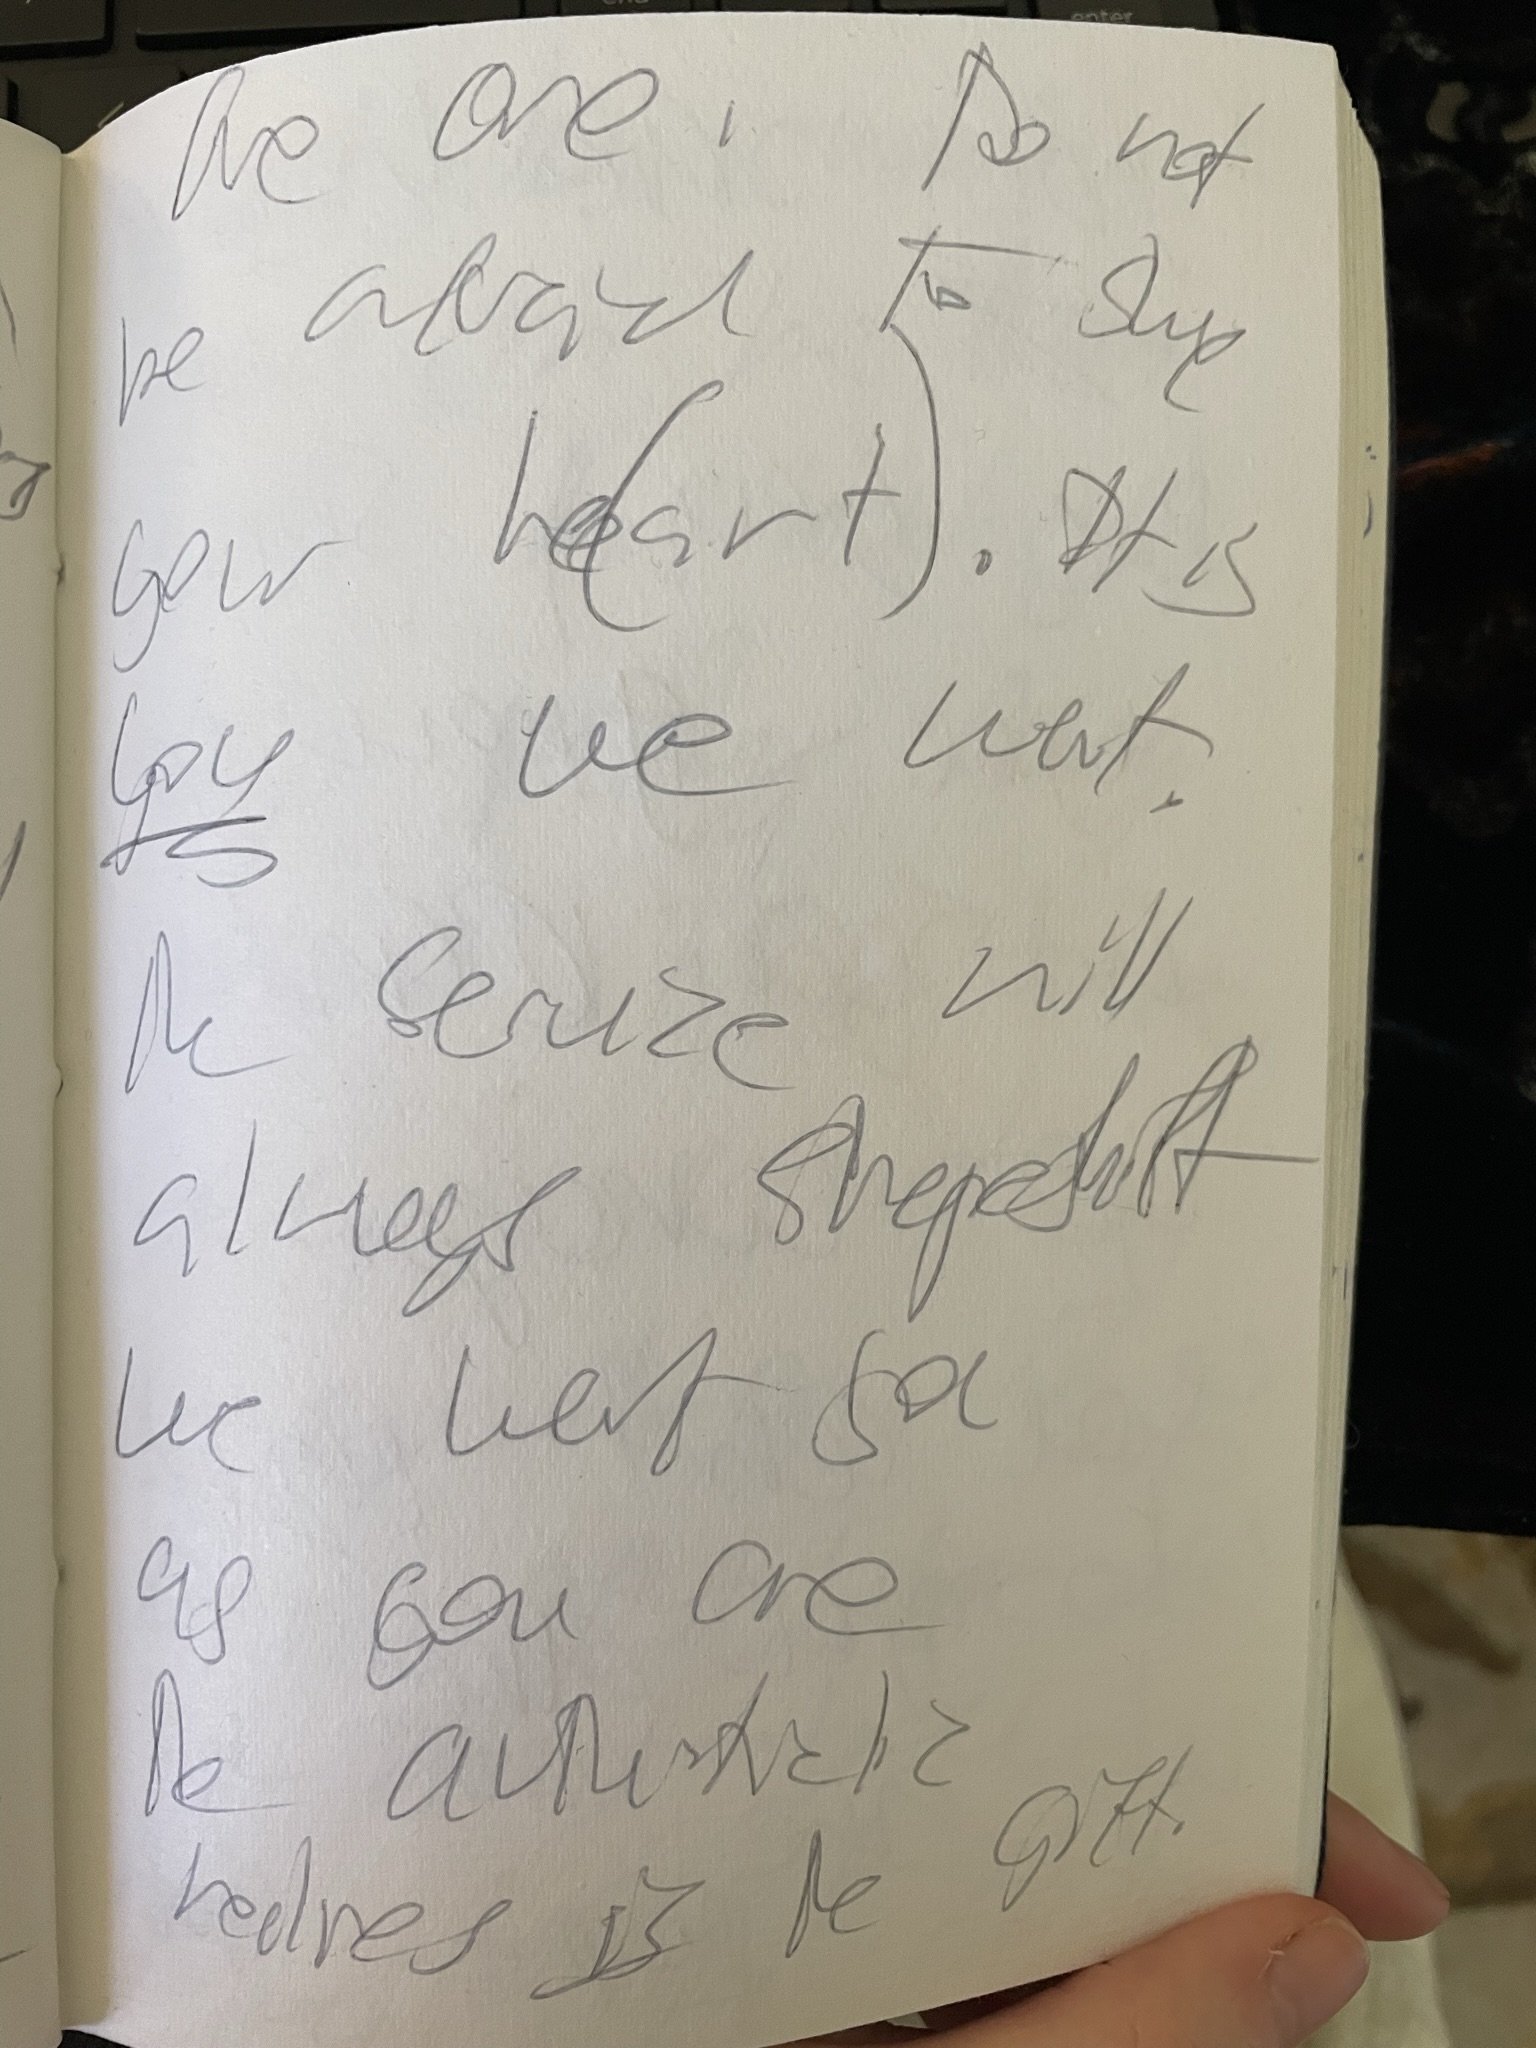 We are. Do not
be afraid to shape
your he(art). It is
you we want.
The service will
always shapeshift
we want you
as you are
The authentic
is the gift.